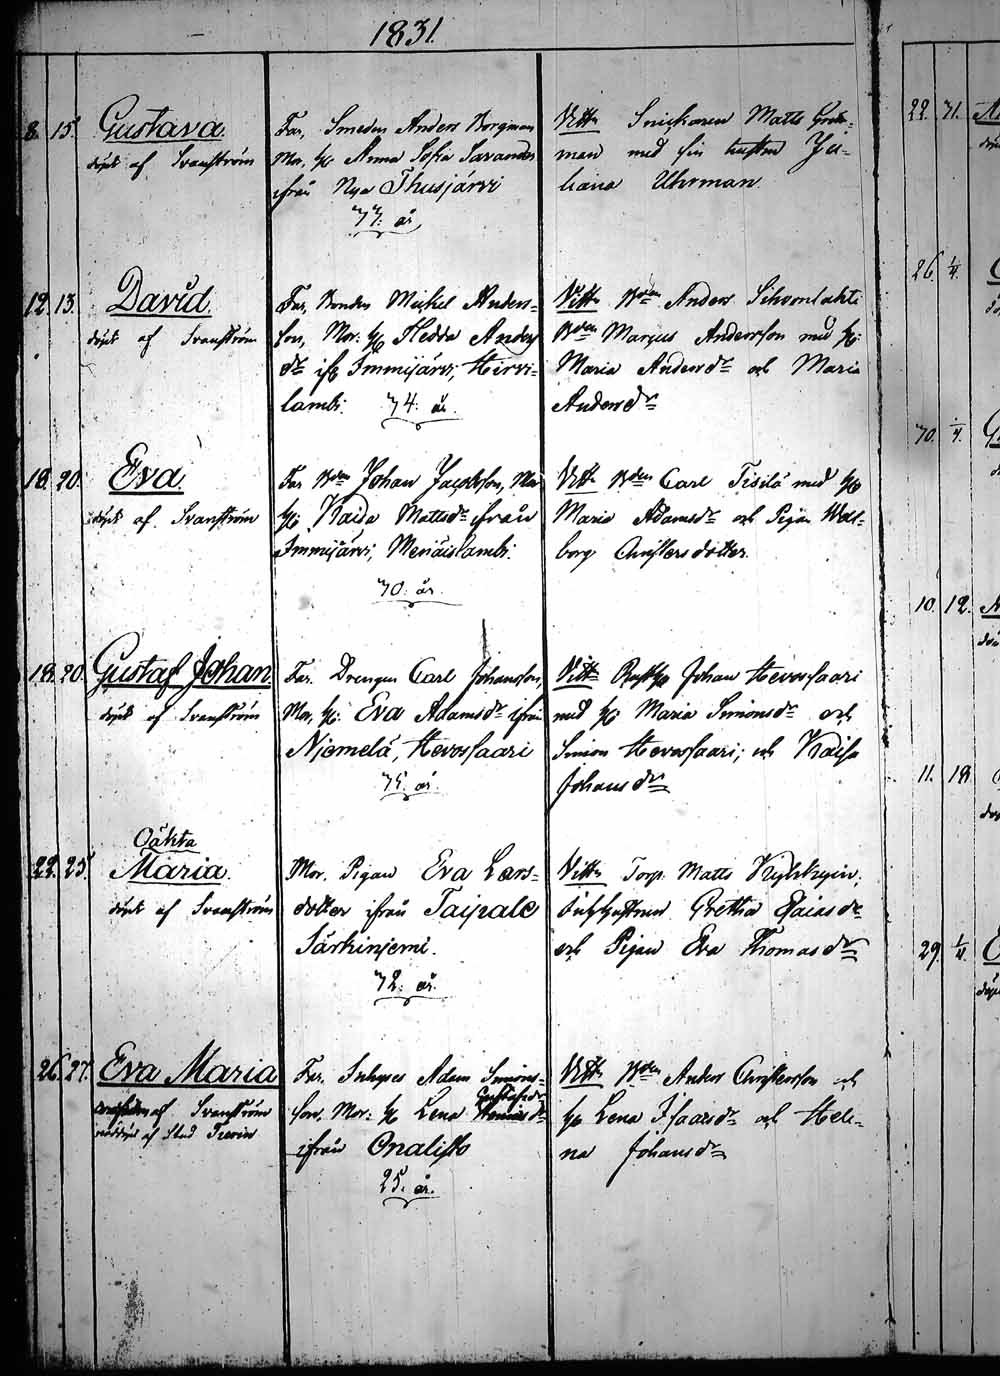 1831.
8. 15. Gustava.
döpt af Svanström
Far, Smeden Anders Borgman
Mor, h. Anna Sofia Savander
ifrån Nya Thusjärvi
77. år
Vittn Snickaren Matts
man med sin hustru Ju-
liana Uhrman.
12. 13. David.
döpt af Svanström
Far, Bonden Michel Anders-
son, Mor. h. Hedda Anders
dr ifr. Immijärvi, Hirvi-
lambi. 74. år.
Vittn Bden Anders
Bden Marcus Andersson med h.
Maria Andersdr och Maria
Andersdr
18. 20. Eva.
döpt af Svanström
Far Bden Johan Jacobsson, Mor
h. Kaisa Mattsdr ifrån
Immijärvi, Meriäislambi.
70. år.
Vittn Bden Carl Tisilä med h.
Maria Adamsdr och Pigan Wal-
borg Christersdotter.
18. 20. Gustaf Johan
döpt af Svanström
Far. Drengen Carl Johansson,
Mor, h. Eva Adamsdr ifrån
Niemelä, Hevossaari
75. år.
Vittn Johan Hevossaari
med h. Maria Simonsdr och
Simon Hevossaari, och Kaisa
Johansdr
22. 25. Oäkta
Maria.
döpt af Svanström
Mor. Pigan Eva Lars-
dotter ifrån Taipale
Särkinjemi.
72. år.
Vittn Torp. Matts
Gretha Esaiasdr
och Pigan Eva Thomasdr
26. 27. Eva Maria
af Svanström
nöddöpt af Stud
Far. Inhyses Adam Simons-
son, Mor: h. Lena Gustafsdr
ifrån Onalisto
25. år.
Vittn Bden Anders Christersson och
h. Lena Isaacsdr och Hele-
na Johansdr
22. 31.
26. 1/4.
70. 1/4.
10. 12.
11. 18
29. 1/4.